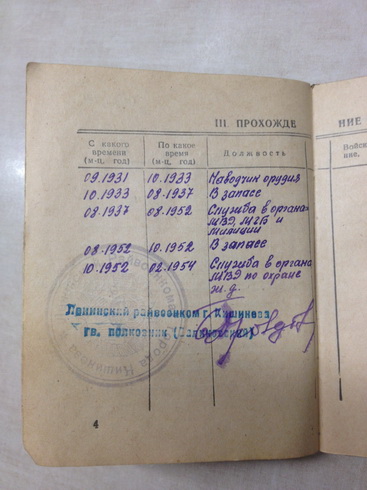 III ПРОХОЖДЕ
НИЕ
С какого
времени
(м-ц, год)
По какое
время
(м-ц, год)
Должность
09.1931 10.1933 Наводчик орудия
10.1933 08.1937 В запасе
08.1937 08.1952 Служба в органах
МВД, МГБ и
милиции
08.1952 10.1952 В запасе
10.1952 02.1954 Служба в органа
МВД по охране
ж.д.
Ленинский райвоенком г. Кишинева
гв. полковник
4